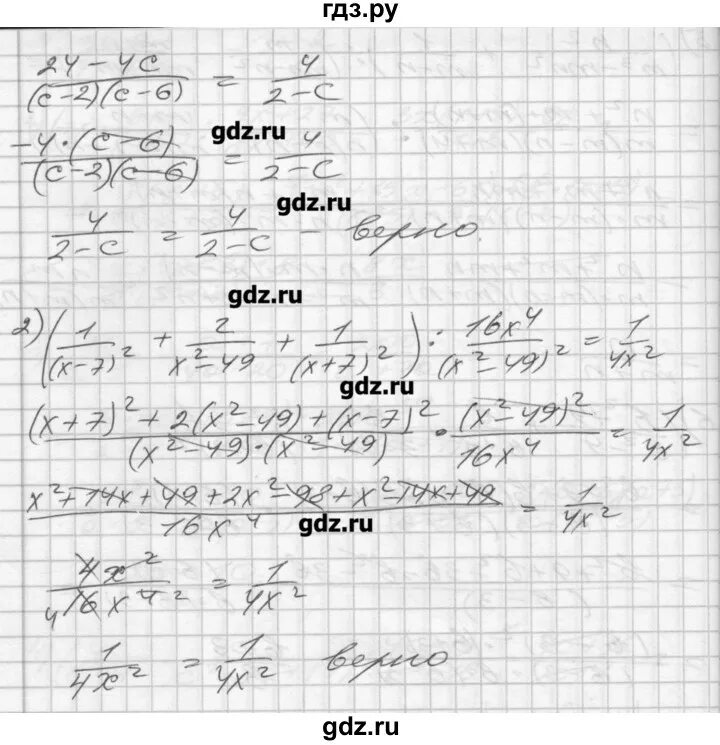 гдз.ру
(24 - 4c)/((c-2)(c-6)) = 4/(2-c)
gdz.ru
(-4·(c-6))/((c-2)(c-6)) = 4/(2-c)
gdz.ru
4/(2-c) = 4/(2-c) - верно.
gdz.ru
2) (1/(x-7)² + 2/(x²-49) + 1/(x+7)²) : 16x⁴/(x²-49)² = 1/4x²
gdz.ru
((x+7)² + 2(x²-49) + (x-7)²)/((x²-49)·(x²-49)) · (x²-49)²/16x⁴ = 1/4x²
(x² + 14x + 49 + 2x² - 98 + x² - 14x + 49)/16x⁴ = 1/4x²
gdz.ru
4x²/16x⁴ = 1/4x²
1/4x² = 1/4x² верно
gdz.ru